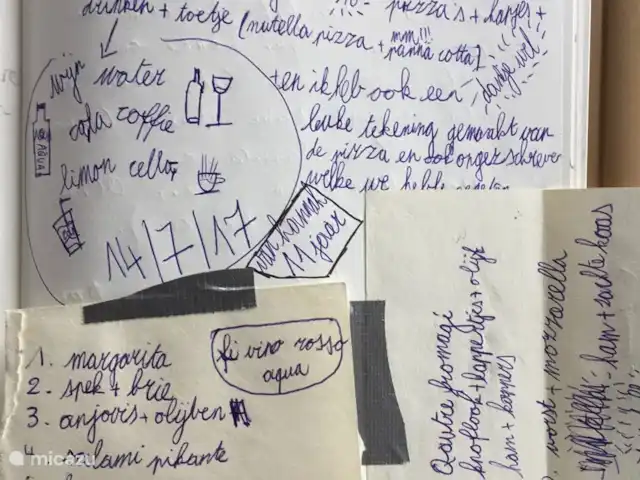 drinken + toetje [nutella pizza + mm!!! panna cotta]
pizza's + hapjes +
dankje wel
wijn water
cola coffie
limon cello
AQUA
14/7/17
van hannah
11 jaar
en ik heb ook een
leuke tekening gemaakt van
de pizza en ook ongeschreven
welke we hebben gegeten
1. margarita
2. spek + brie
3. anjovis + olijven
4. salami pikante
fi vino rosso
aqua
Qautre fromagi
knoflook + kappertjes + olijf
ham + kappers
worst + mozzarella
ham + zachte kaas
micazu